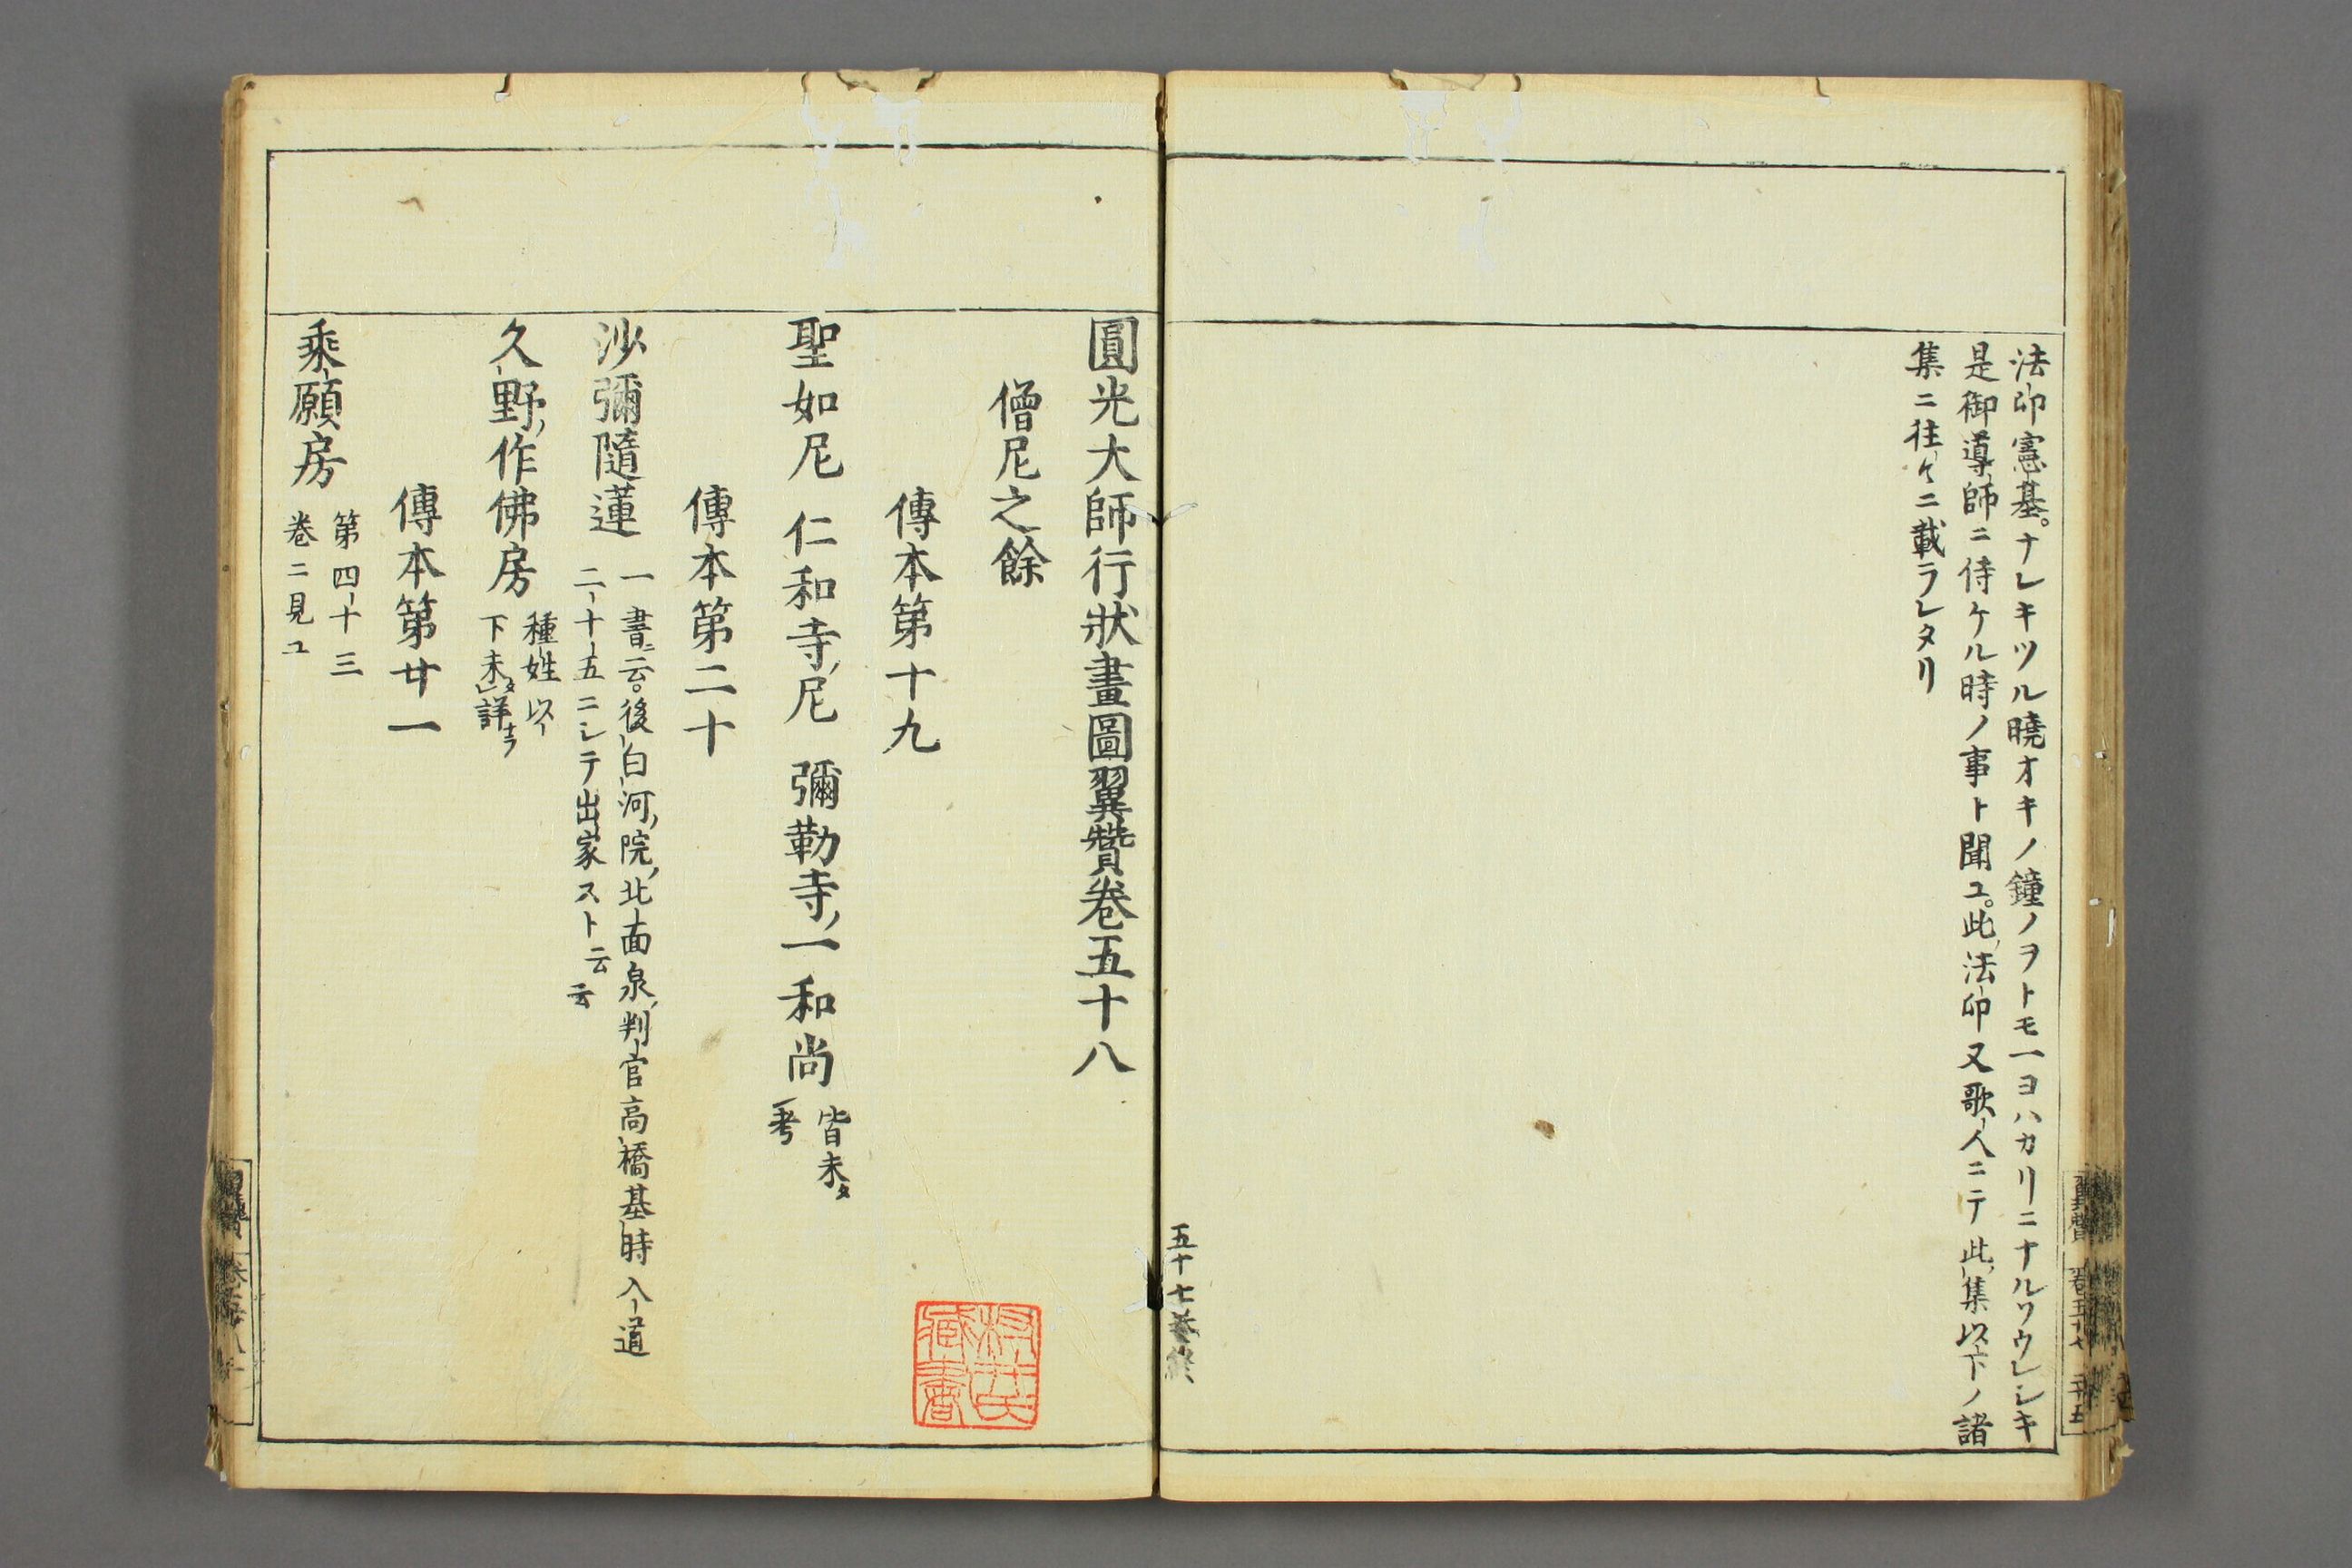 法印憲基。ナレキツル曉オキノ鐘ノヲトモ一ヨハカリニナルソウレシキ
是御導師ニ侍ケル時ノ事ト聞ユ。此法印又歌人ニテ此集以下ノ諸
集ニ往々ニ載ラレタリ
五十七卷終
圓光大師行狀畫圖翼贊卷五十八
僧尼之餘
傳本第十九
聖如尼 仁和寺ノ尼 彌勒寺ノ一和尚 皆未タ
考
傳本第二十
沙彌隨蓮 一書ニ云。後白河ノ院ノ北面泉ノ判官高橋基時入道
二十五ニシテ出家スト云云
久野ノ作佛房 種姓以
下未タ詳ナラ
傳本第廿一
乘願房 第四十三
卷ニ見ユ
翼贊 卷五十七